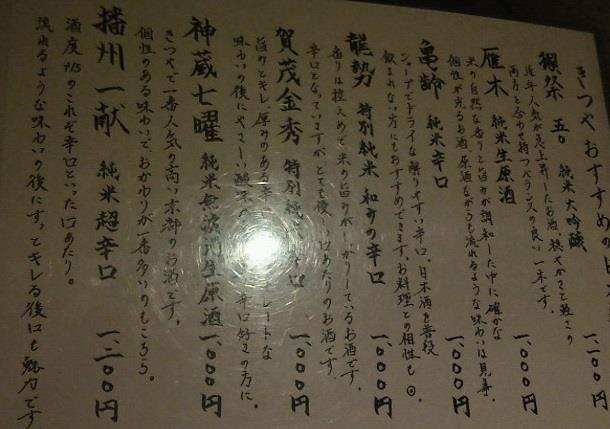 きつやおすすめの日
獺祭 五〇 純米大吟醸 一、一〇〇円
近年人気が急上昇したお酒。穏やかさと艶っさ
両方を合わせ持つバランスの良い一本です。
雁木 純米生原酒 一、〇〇〇円
米の自然な香りと旨みが調和した中に確かな
個性が光るお酒。原酒ながらも流れるような味わいは見事。
亀齢 純米辛口 一、〇〇〇円
シャープでドライな解りやすい辛口。日本酒を普段
飲まれない方にもおすすめできます。お料理との相性も◎。
龍勢 特別純米 和みの辛口 一、〇〇〇円
香りは控えめで米の旨みがしっかりしているお酒です。
辛口となっていますが、とても優しい口あたりのお酒です。
賀茂金秀 特別純 辛口 一、〇〇〇円
旨みとキレ、厚みのある辛 トレートな
味わいの後にやさしい酸味の 辛口好きの方に。
神蔵七曜 純米無濾過生原酒 一、〇〇〇円
きつやで一番人気の高い京都のお酒です。
個性のある味わいで、おかわりが一番多いのもこちら。
播州一献 純米超辛口 一、二〇〇円
酒度+15のこれぞ辛口といった口あたり。
流れるような味わいの後にすっとキレる後口も魅力です